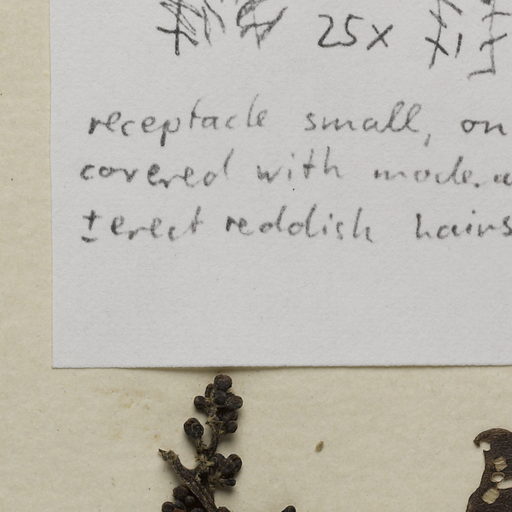 25x
receptacle small, on
covered with
±erect reddish hairs